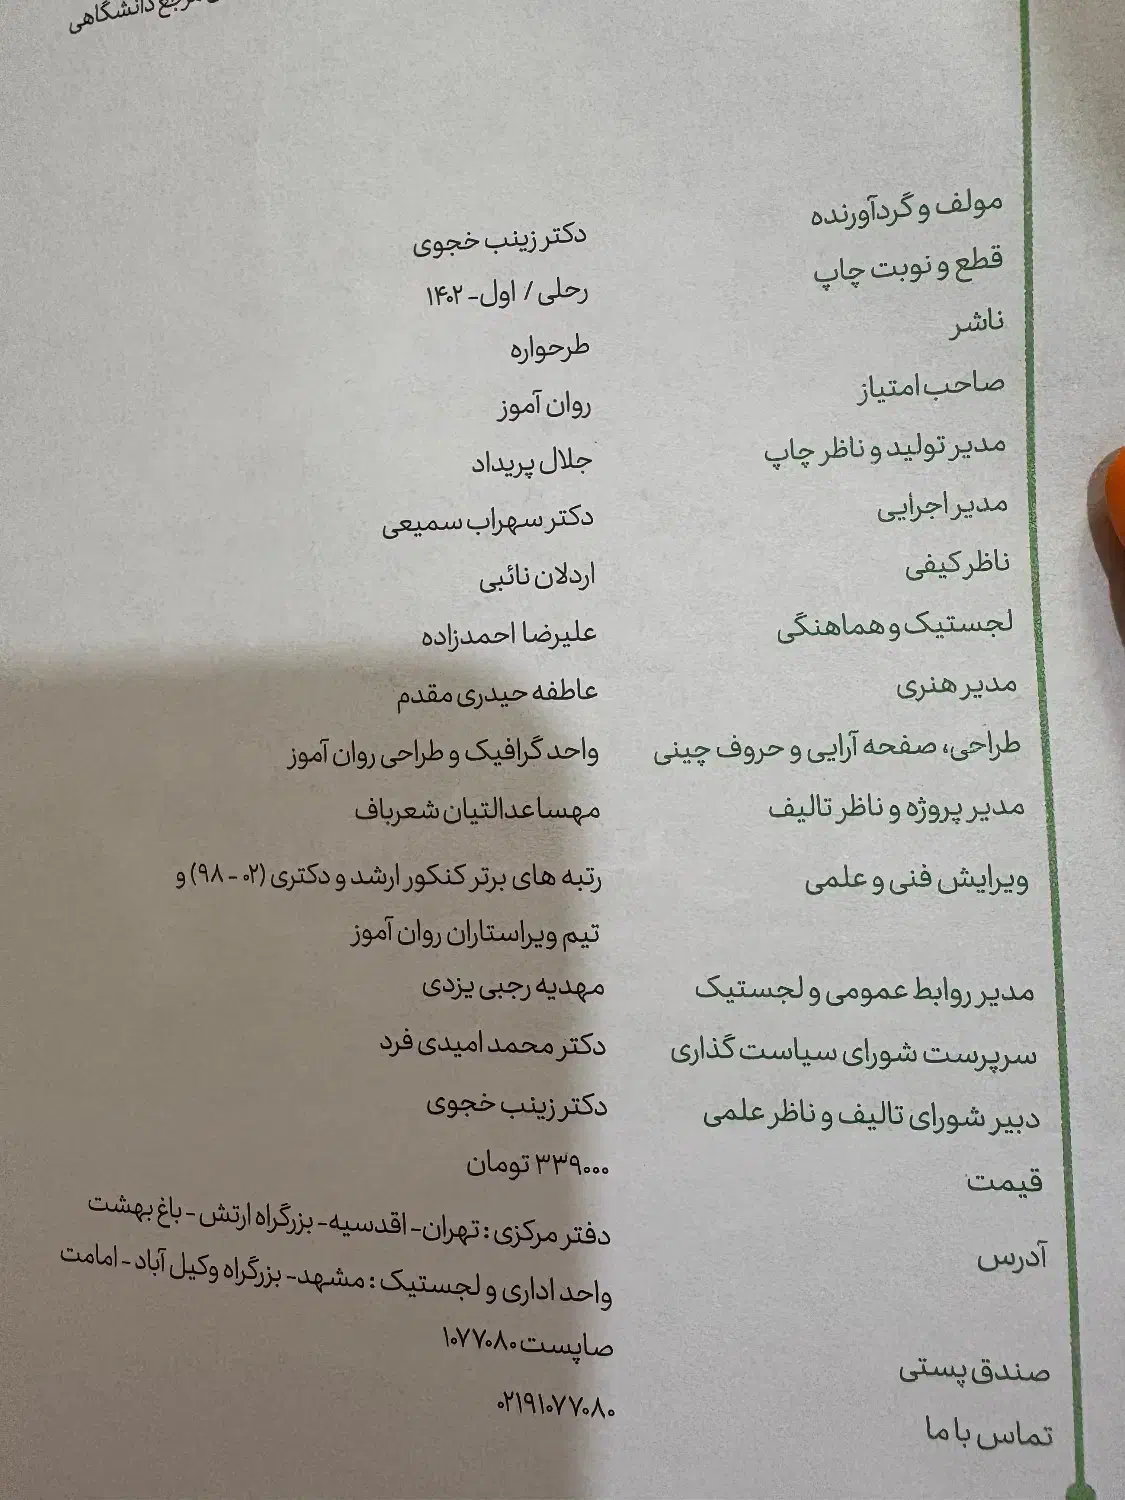 مرجع دانشگاهی
مولف و گردآورنده دکتر زینب خجوی
قطع و نوبت چاپ رحلی / اول- ۱۴۰۲
ناشر طرحواره
صاحب امتیاز روان آموز
مدیر تولید و ناظر چاپ جلال پریداد
مدیر اجرایی دکتر سهراب سمیعی
ناظر کیفی اردلان نائبی
لجستیک و هماهنگی علیرضا احمدزاده
مدیر هنری عاطفه حیدری مقدم
طراحی، صفحه آرایی و حروف چینی واحد گرافیک و طراحی روان آموز
مدیر پروژه و ناظر تالیف مهسا عدالتیان شعرباف
ویرایش فنی و علمی رتبه های برتر کنکور ارشد و دکتری (۰۲ - ۹۸) و
تیم ویراستاران روان آموز
مدیر روابط عمومی و لجستیک مهدیه رجبی یزدی
سرپرست شورای سیاست گذاری دکتر محمد امیدی فرد
دبیر شورای تالیف و ناظر علمی دکتر زینب خجوی
قیمت ۳۳۹۰۰۰ تومان
آدرس دفتر مرکزی : تهران- اقدسیه- بزرگراه ارتش - باغ بهشت
واحد اداری و لجستیک : مشهد- بزرگراه وکیل آباد - امامت
صندق پستی صاپست ۱۰۷۷۰۸۰
تماس با ما ۰۲۱۹۱۰۷۷۰۸۰